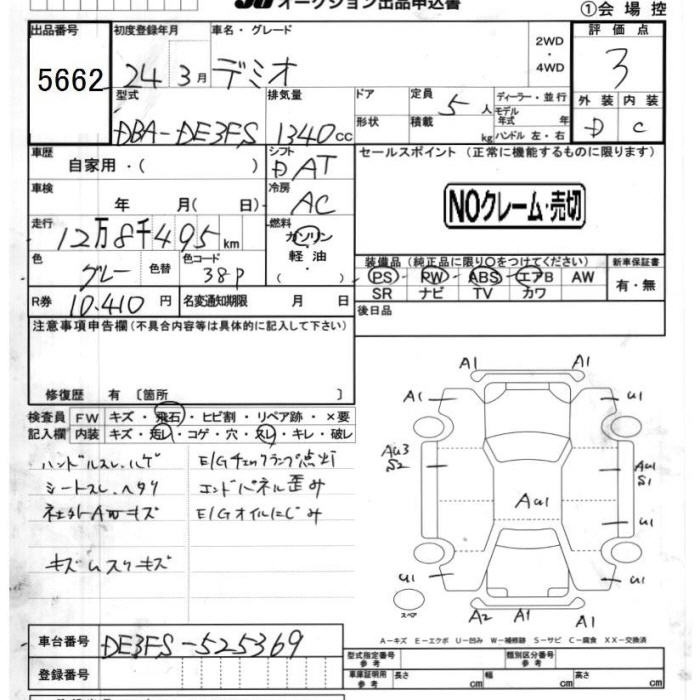 オークション出品申込書
①会場控
出品番号
5662
初度登録年月
24 3月
車名・グレード
デミオ
2WD
・
4WD
評価点
3
型式
DBA-DE3FS
排気量
1340cc
ドア
形状
定員 5人
積載 kg
ディーラー・並行
モデル年式 年
ハンドル 左・右
外装 内装
D C
車歴
自家用・( )
シフト
DAT
セールスポイント (正常に機能するものに限ります)
NOクレーム・売切
車検
年 月( 日)
冷房
AC
走行
12万8千495km
燃料
ガソリン
軽油
( )
色
グレー
色替
色コード
38P
装備品(純正品に限り○をつけてください)
新車保証書
PS・PW・ABS・エアB AW
SR ナビ TV カワ
有・無
R券 10.410円
名変通知期限 月 日
後日品
注意事項申告欄(不具合内容等は具体的に記入して下さい)
修復歴 有 〔箇所 〕
検査員
記入欄
FW キズ・飛石・ヒビ割・リペア跡・×要
内装 キズ・汚レ・コゲ・穴・スレ・キレ・破レ
ハンドルスレ、ハゲ
シートスレ、ヘタリ
キズムスリーキズ
E/Gチェックランプ点灯
エンドパネル歪み
E/Gオイルにじみ
A1 A1
A1 U1
Au3
S2
Au1
S1
Au1
U1
U1 U1
A2 A1 A1
スペア
A-キズ E-エクボ U-凹み W-補修跡 S-サビ C-腐食 XX-交換済
車台番号 DE3FS-525369
登録番号
型式指定番号
参考
類別区分番号
参考
車庫証明用
参考
長さ cm
幅 cm
高さ cm